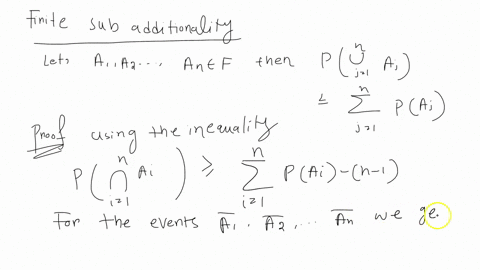 Finite sub additionality
Let, A₁, A₂ ..., An ∈ F then P(⋃ⁿⱼ₌₁ Aj)
≤ ∑ⁿⱼ₌₁ P(Aj)
Proof using the inequality
P(⋂ⁿᵢ₌₁ Ai) ≥ ∑ⁿᵢ₌₁ P(Ai) - (n-1)
For the events A̅₁, A̅₂, ... A̅n we ge